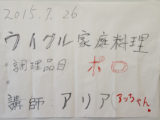 2015.9.26
ウイグル家庭料理
・調理品目 ポロ
講師 アリアあっちゃん